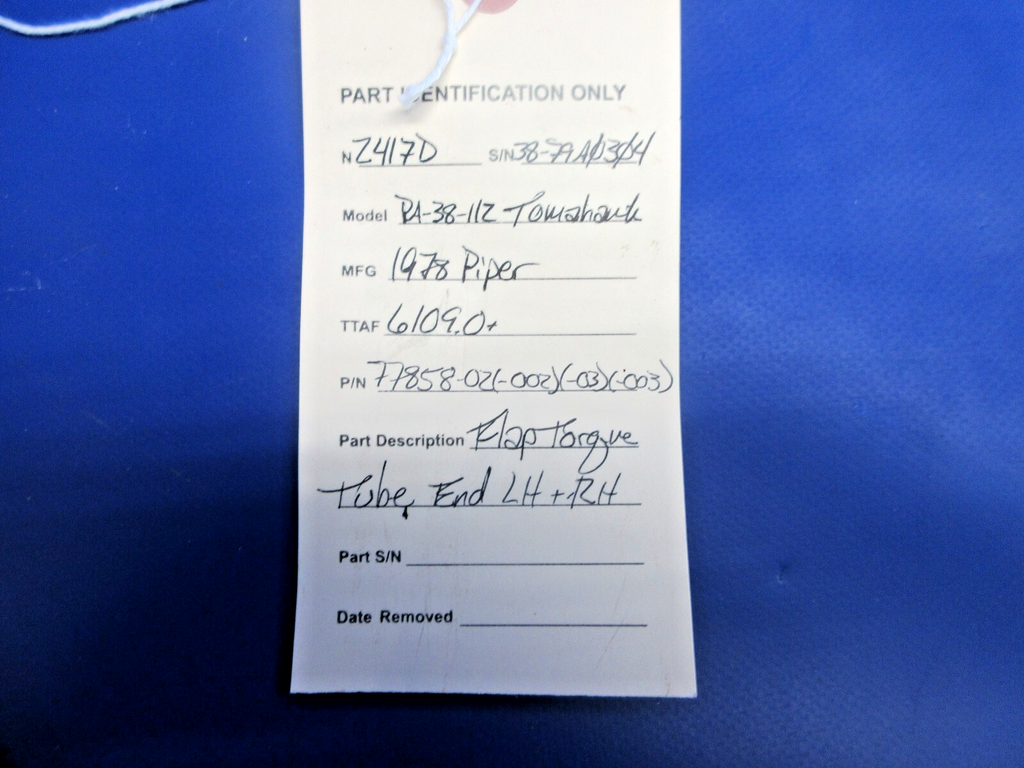 PART IDENTIFICATION ONLY
N 2417D S/N 38-79A0304
Model PA-38-112 Tomahawk
MFG 1978 Piper
TTAF 6109.0+
P/N 77858-02(-002)(-03)(-003)
Part Description Flap Torque
Tube, End LH + RH
Part S/N
Date Removed